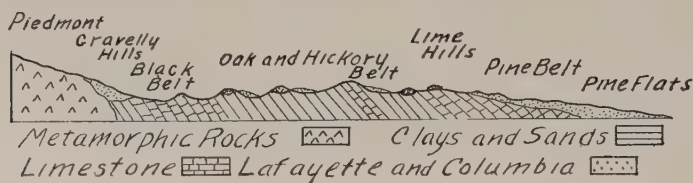 Piedmont
Gravelly Hills
Black Belt
Oak and Hickory Belt
Lime Hills
Pine Belt
Pine Flats
Metamorphic Rocks Clays and Sands
Limestone Lafayette and Columbia